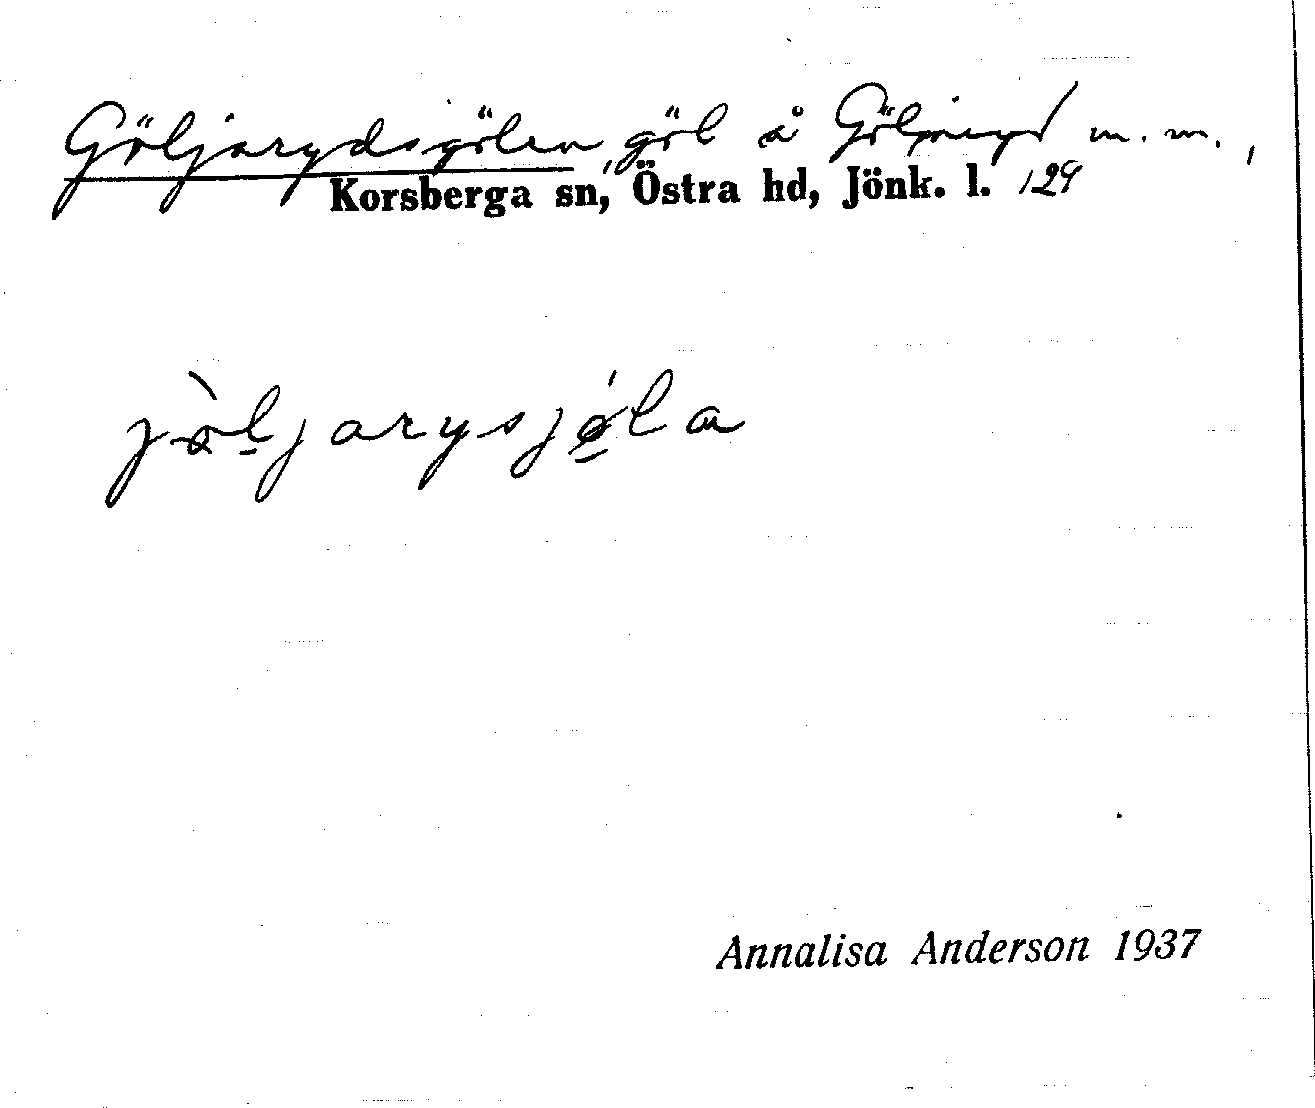 Göljarydsgölen, göl å Göljaryd m. m.,
Korsberga sn, Östra hd, Jönk. l. 129
jö̀ljarysjǿla
Annalisa Anderson 1937